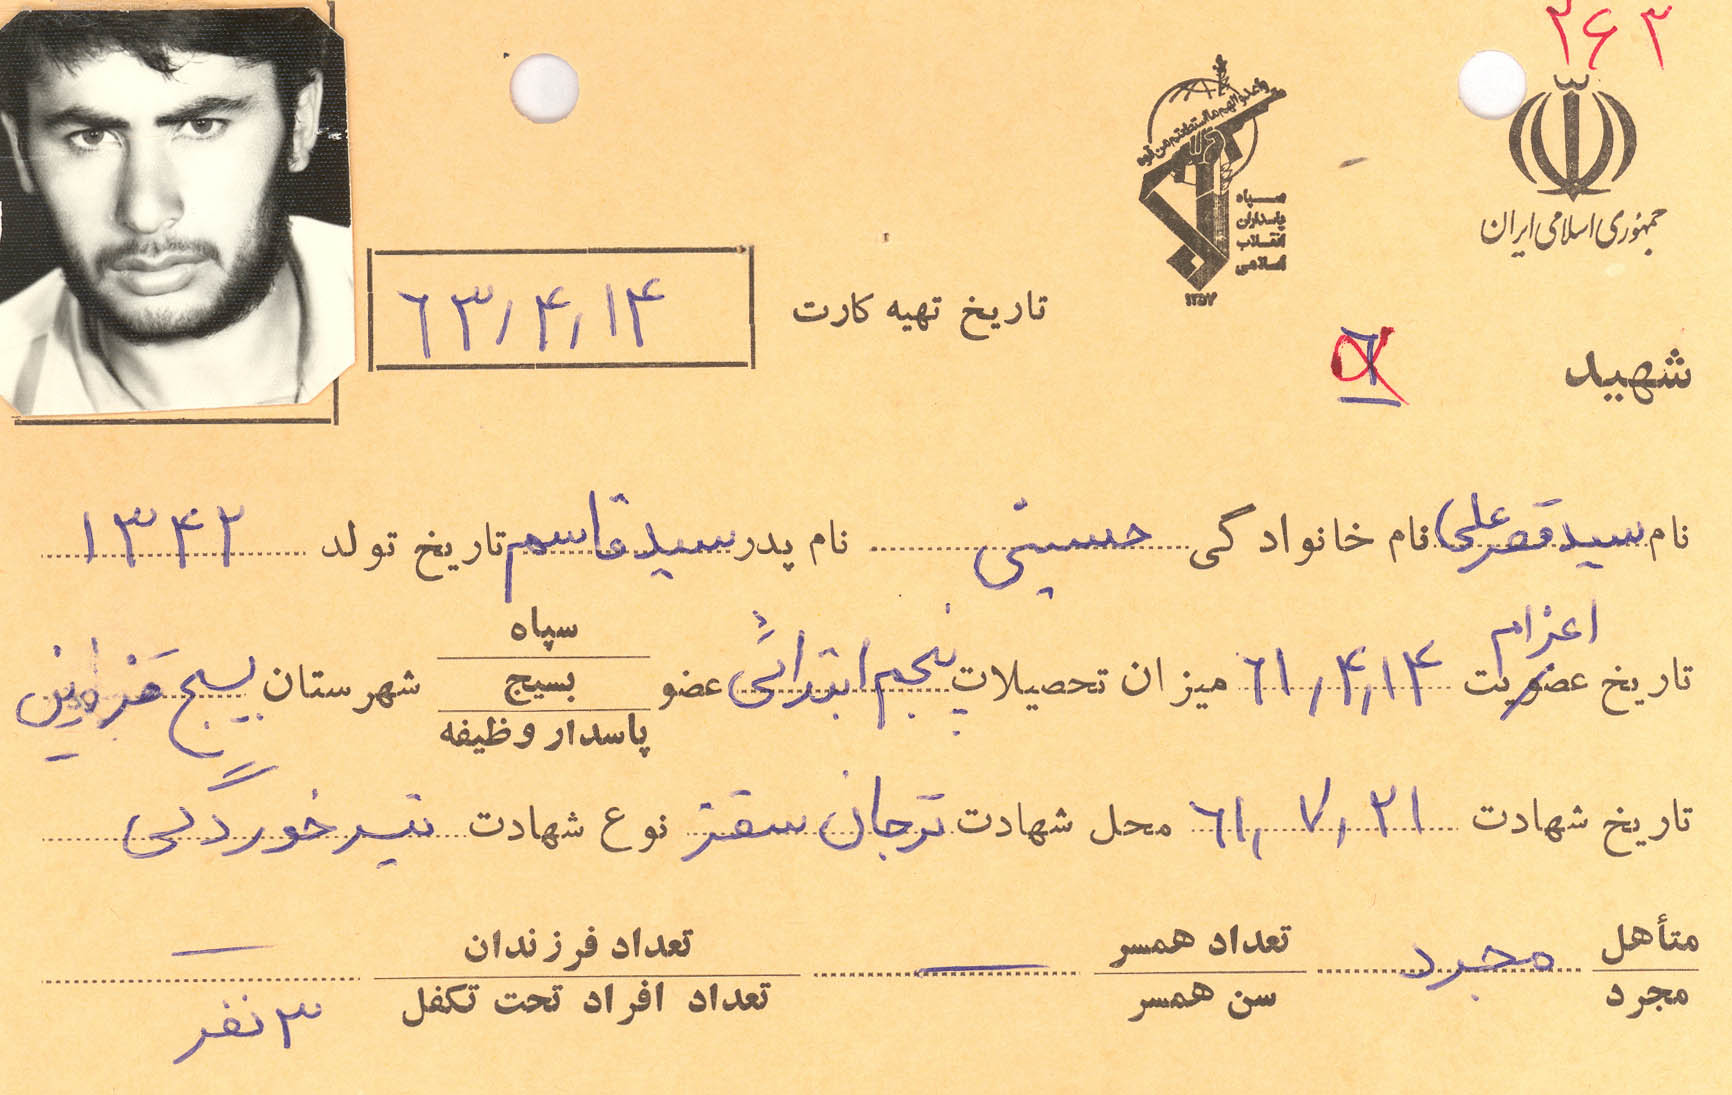 ۲۶۳
واعدوا لهم ما استطعتم من قوة
سپاه
پاسداران
انقلاب
اسلامی
۱۳۵۷
جمهوری اسلامی ایران
تاریخ تهیه کارت ۶۳/۴/۱۴
شهید ۶
نام سید قصرعلی نام خانوادگی حسینی نام پدر سید قاسم تاریخ تولد ۱۳۴۲
اعزام
سپاه
تاریخ عضویت ۶۱/۴/۱۴ میزان تحصیلات پنجم ابتدائی عضو بسیج شهرستان بسیج قزوین
پاسدار وظیفه
تاریخ شهادت ۶۱/۷/۲۱ محل شهادت ترجان سقز نوع شهادت تیر خوردگی
متأهل مجرد تعداد همسر — تعداد فرزندان —
مجرد سن همسر تعداد افراد تحت تکفل ۳ نفر